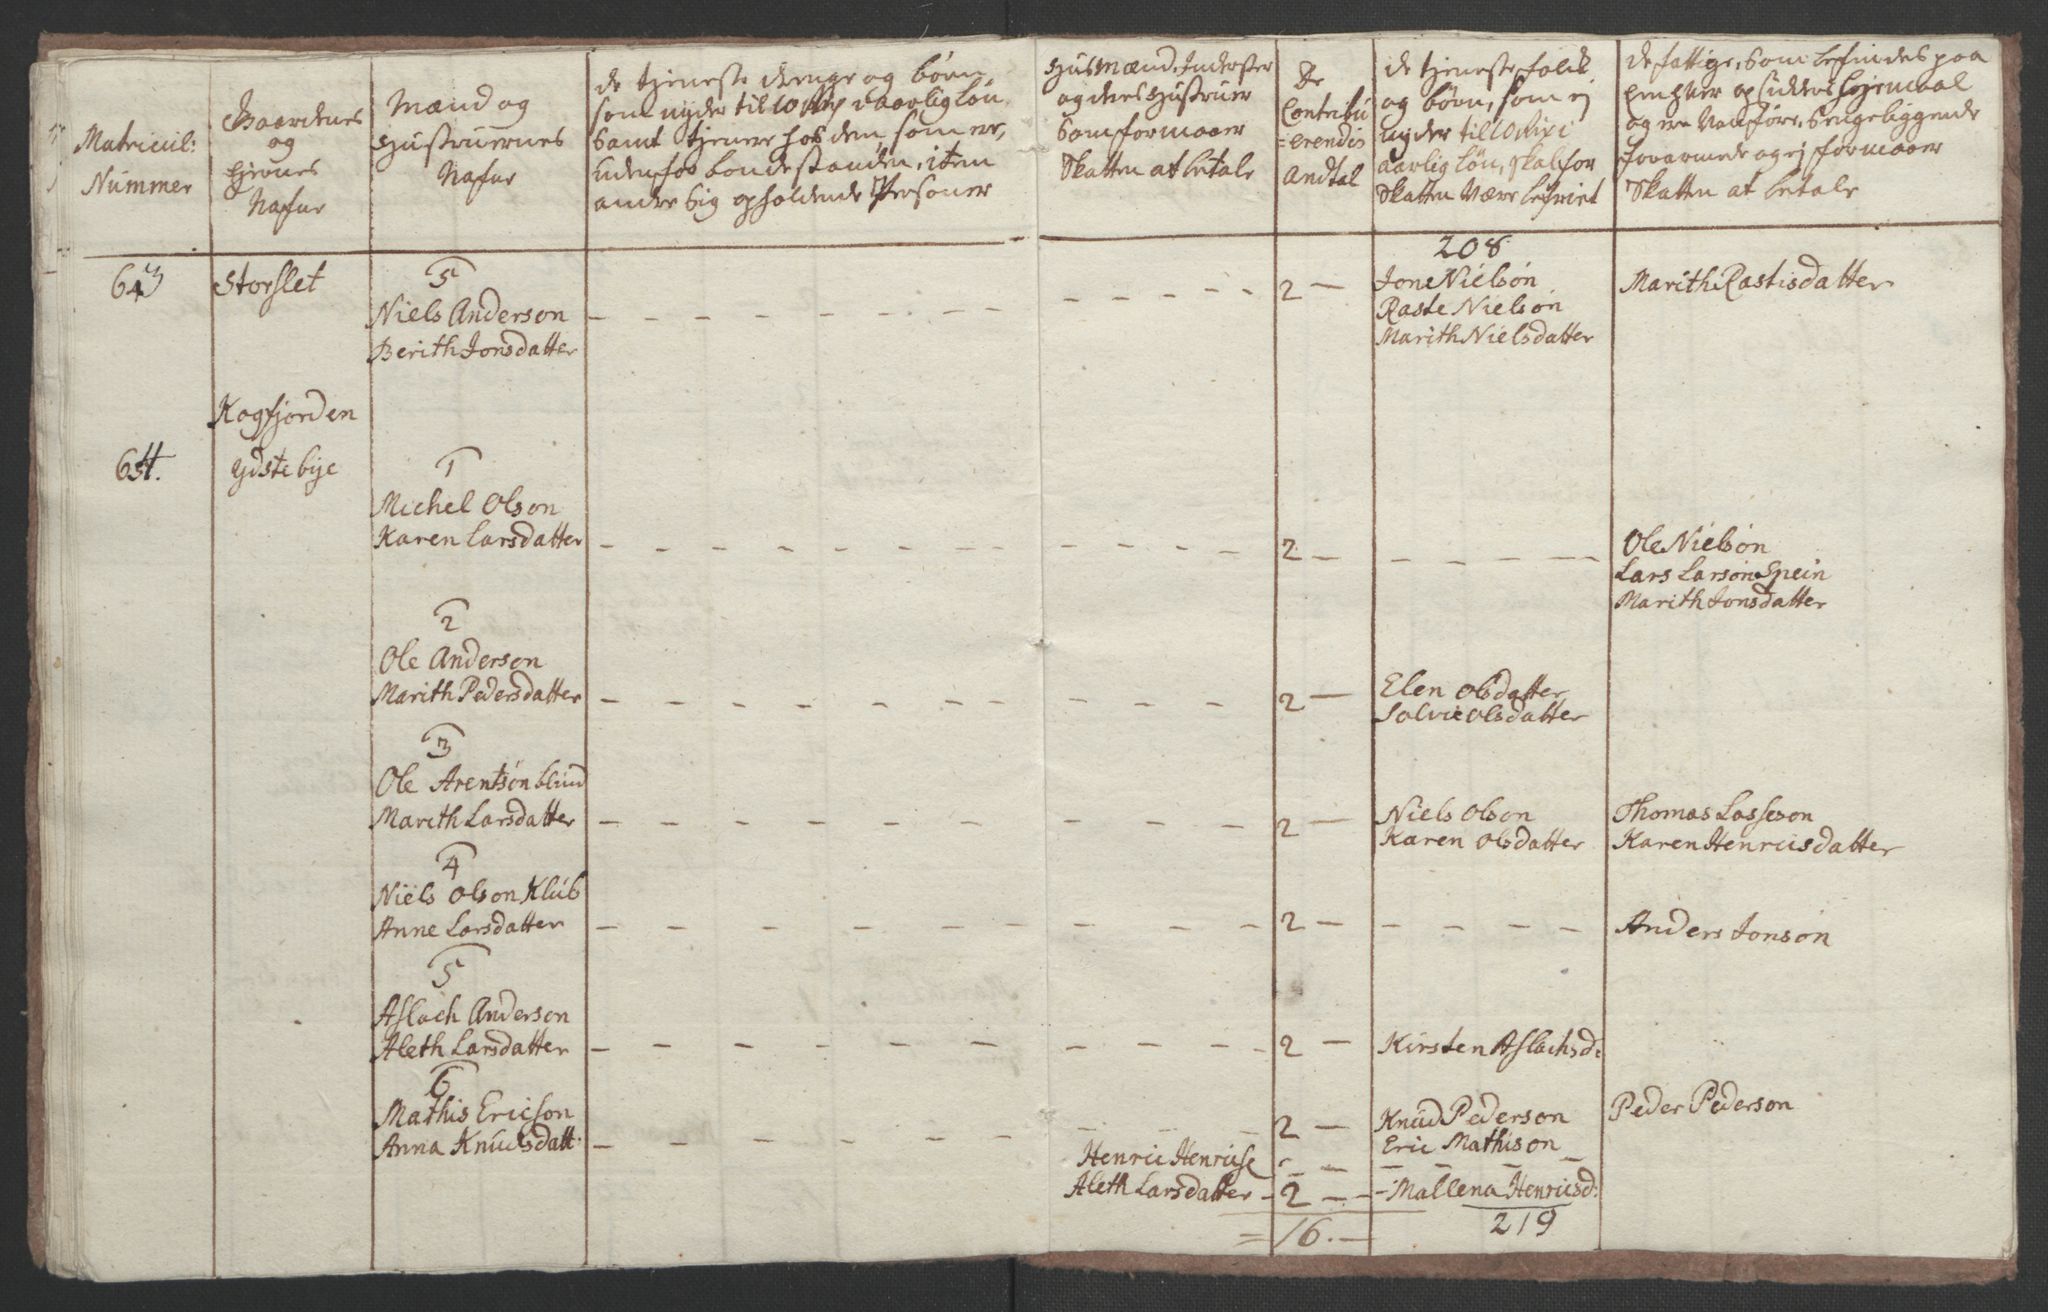 Matricul:
Nummer
Gaardenes
og
Ejernes
Nafne
Mænd og
Hustruernes
Nafne
de tjeneste drenge og børn,
som nyder til 10 aarlig Løn
samt tjenere hos dem, som ere,
udenfor bondestanden, item
andre sig opholdende Personer
Husmænd, Inderster
og deres Hustruer
som formaaer
Skatten at betale
De
Contribu
=erendis
Andtal
de tjeneste folk
og børn, som ej
nyder til 10 Rixd
aarlig Løn, skal for
Skatten være befriet
de fattige, som befindes paa
en hver opsidders Hjemaal
og ere Vanføre, Sengeliggende
forarmede og ej formaaer
Skatten at betale
208
643 Storslet 5
Niels Anderson
Berith Jonsdatter
2 —
Jone Nielsøn
Raste Nielsøn
Marith Nielsdatter
Marith Rastisdatter
Kagfjorden
654. ydstebye 1
Michel Olson
Karen Larsdatter
2 —
Ole Nielsøn
Lars Larsøn Spein
Marith Jonsdatter
2
Ole Anderson
Marith Pedersdatter
2 —
Elen Olsdatter
Solvie Olsdatter
3
Ole Arentsøn blind
Marith Larsdatter
2 —
Niels Olson
Karen Olsdatter
Thomas Lasseson
Karen Henricsdatter
4
Niels Olson Klub
Anne Larsdatter
2 —
Anders Jonsøn
5
Aslach Anderson
Aleth Larsdatter
2 —
Kirsten Aslachsd:
6
Mathis Ericson
Anna Knudsdatt:
2 —
Knud Pederson
Eric Mathison
Peder Pederson
Henric Henricse
Aleth Larsdatter - 2 — Mallena Henricsd:
= 16. —
219